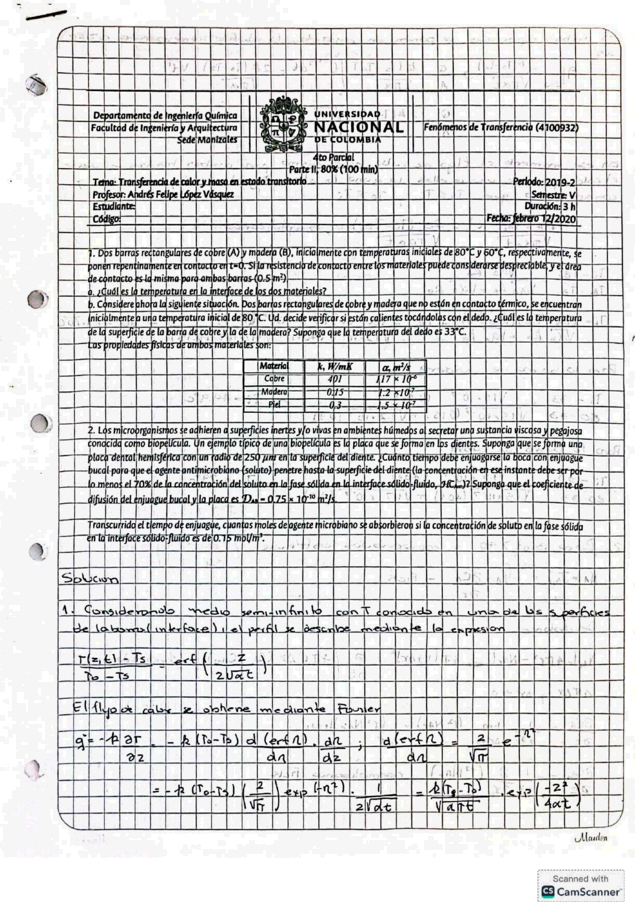 Departamento de Ingeniería Química
Facultad de Ingeniería y Arquitectura
Sede Manizales
UNIVERSIDAD
NACIONAL
DE COLOMBIA
Fenómenos de Transferencia (4100932)
4to Parcial
Parte II, 80% (100 min)
Tema: Transferencia de calor y masa en estado transitorio
Periodo: 2019-2
Profesor: Andrés Felipe López Vásquez
Semestre: V
Estudiante:
Duración: 3 h
Código:
Fecha: febrero 12/2020
1. Dos barras rectangulares de cobre (A) y madera (B), inicialmente con temperaturas iniciales de 80°C y 60°C, respectivamente, se
ponen repentinamente en contacto en t=0. Si la resistencia de contacto entre los materiales puede considerarse despreciable, y el área
de contacto es la misma para ambas barras (0.5 m²)
a. ¿Cuál es la temperatura en la interface de los dos materiales?
b. Considere ahora la siguiente situación. Dos barras rectangulares de cobre y madera que no están en contacto térmico, se encuentran
inicialmente a una temperatura inicial de 80 °C. Ud. decide verificar si están calientes tocándolas con el dedo. ¿Cuál es la temperatura
de la superficie de la barra de cobre y la de la madera? Suponga que la temperatura del dedo es 33°C.
Las propiedades físicas de ambos materiales son:
Material k, W/mK α, m²/s
Cobre 401 117 × 10⁻⁶
Madera 0.15 1.2 ×10⁻⁷
Piel 0,3 1.5 × 10⁻⁷
2. Los microorganismos se adhieren a superficies inertes y/o vivas en ambientes húmedos al secretar una sustancia viscosa y pegajosa
conocida como biopelícula. Un ejemplo típico de una biopelícula es la placa que se forma en los dientes. Suponga que se forma una
placa dental hemisférica con un radio de 250 μm en la superficie del diente. ¿Cuánto tiempo debe enjuagarse la boca con enjuague
bucal para que el agente antimicrobiano (soluto) penetre hasta la superficie del diente (la concentración en ese instante debe ser por
lo menos el 70% de la concentración del soluto en la fase sólida en la interface sólido-fluido, )? Suponga que el coeficiente de
difusión del enjuague bucal y la placa es 𝒟AB = 0,75 × 10⁻¹⁰ m²/s.
Transcurrido el tiempo de enjuague, cuantas moles de agente microbiano se absorbieron si la concentración de soluto en la fase sólida
en la interface sólido-fluido es de 0.15 mol/m³.
Solucion
1. Considerando medio semi-infinito con T conocido en una de las superficies
de la barra (interface), el perfil se describe mediante la expresion
T(z,t) - Ts / To - Ts = erf ( z / 2√αt )
El flujo de calor se obtiene mediante Fourier
q = -k ∂T/∂z = - k (To-Ts) d (erf η)/dη · dη/dz ; d(erf η)/dη = 2/√π e^-η²
= -k (To-Ts) (2/√π) exp (-η²) · 1/2√αt = k(Ts-To)/√απt · exp (-z²/4αt)
Scanned with
CS CamScanner